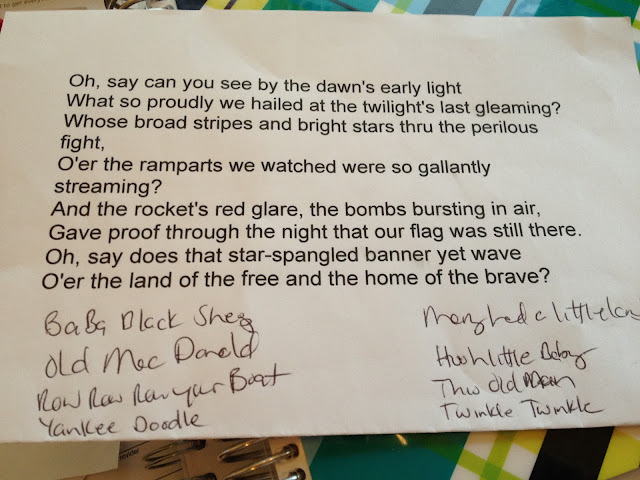 Oh, say can you see by the dawn's early light
What so proudly we hailed at the twilight's last gleaming?
Whose broad stripes and bright stars thru the perilous
fight,
O'er the ramparts we watched were so gallantly
streaming?
And the rocket's red glare, the bombs bursting in air,
Gave proof through the night that our flag was still there.
Oh, say does that star-spangled banner yet wave
O'er the land of the free and the home of the brave?
BaBa Black Sheep
Old Mac Donald
Row Row Row your Boat
Yankee Doodle
Mary had a little lam
Hush little Baby
This Old Man
Twinkle Twinkle